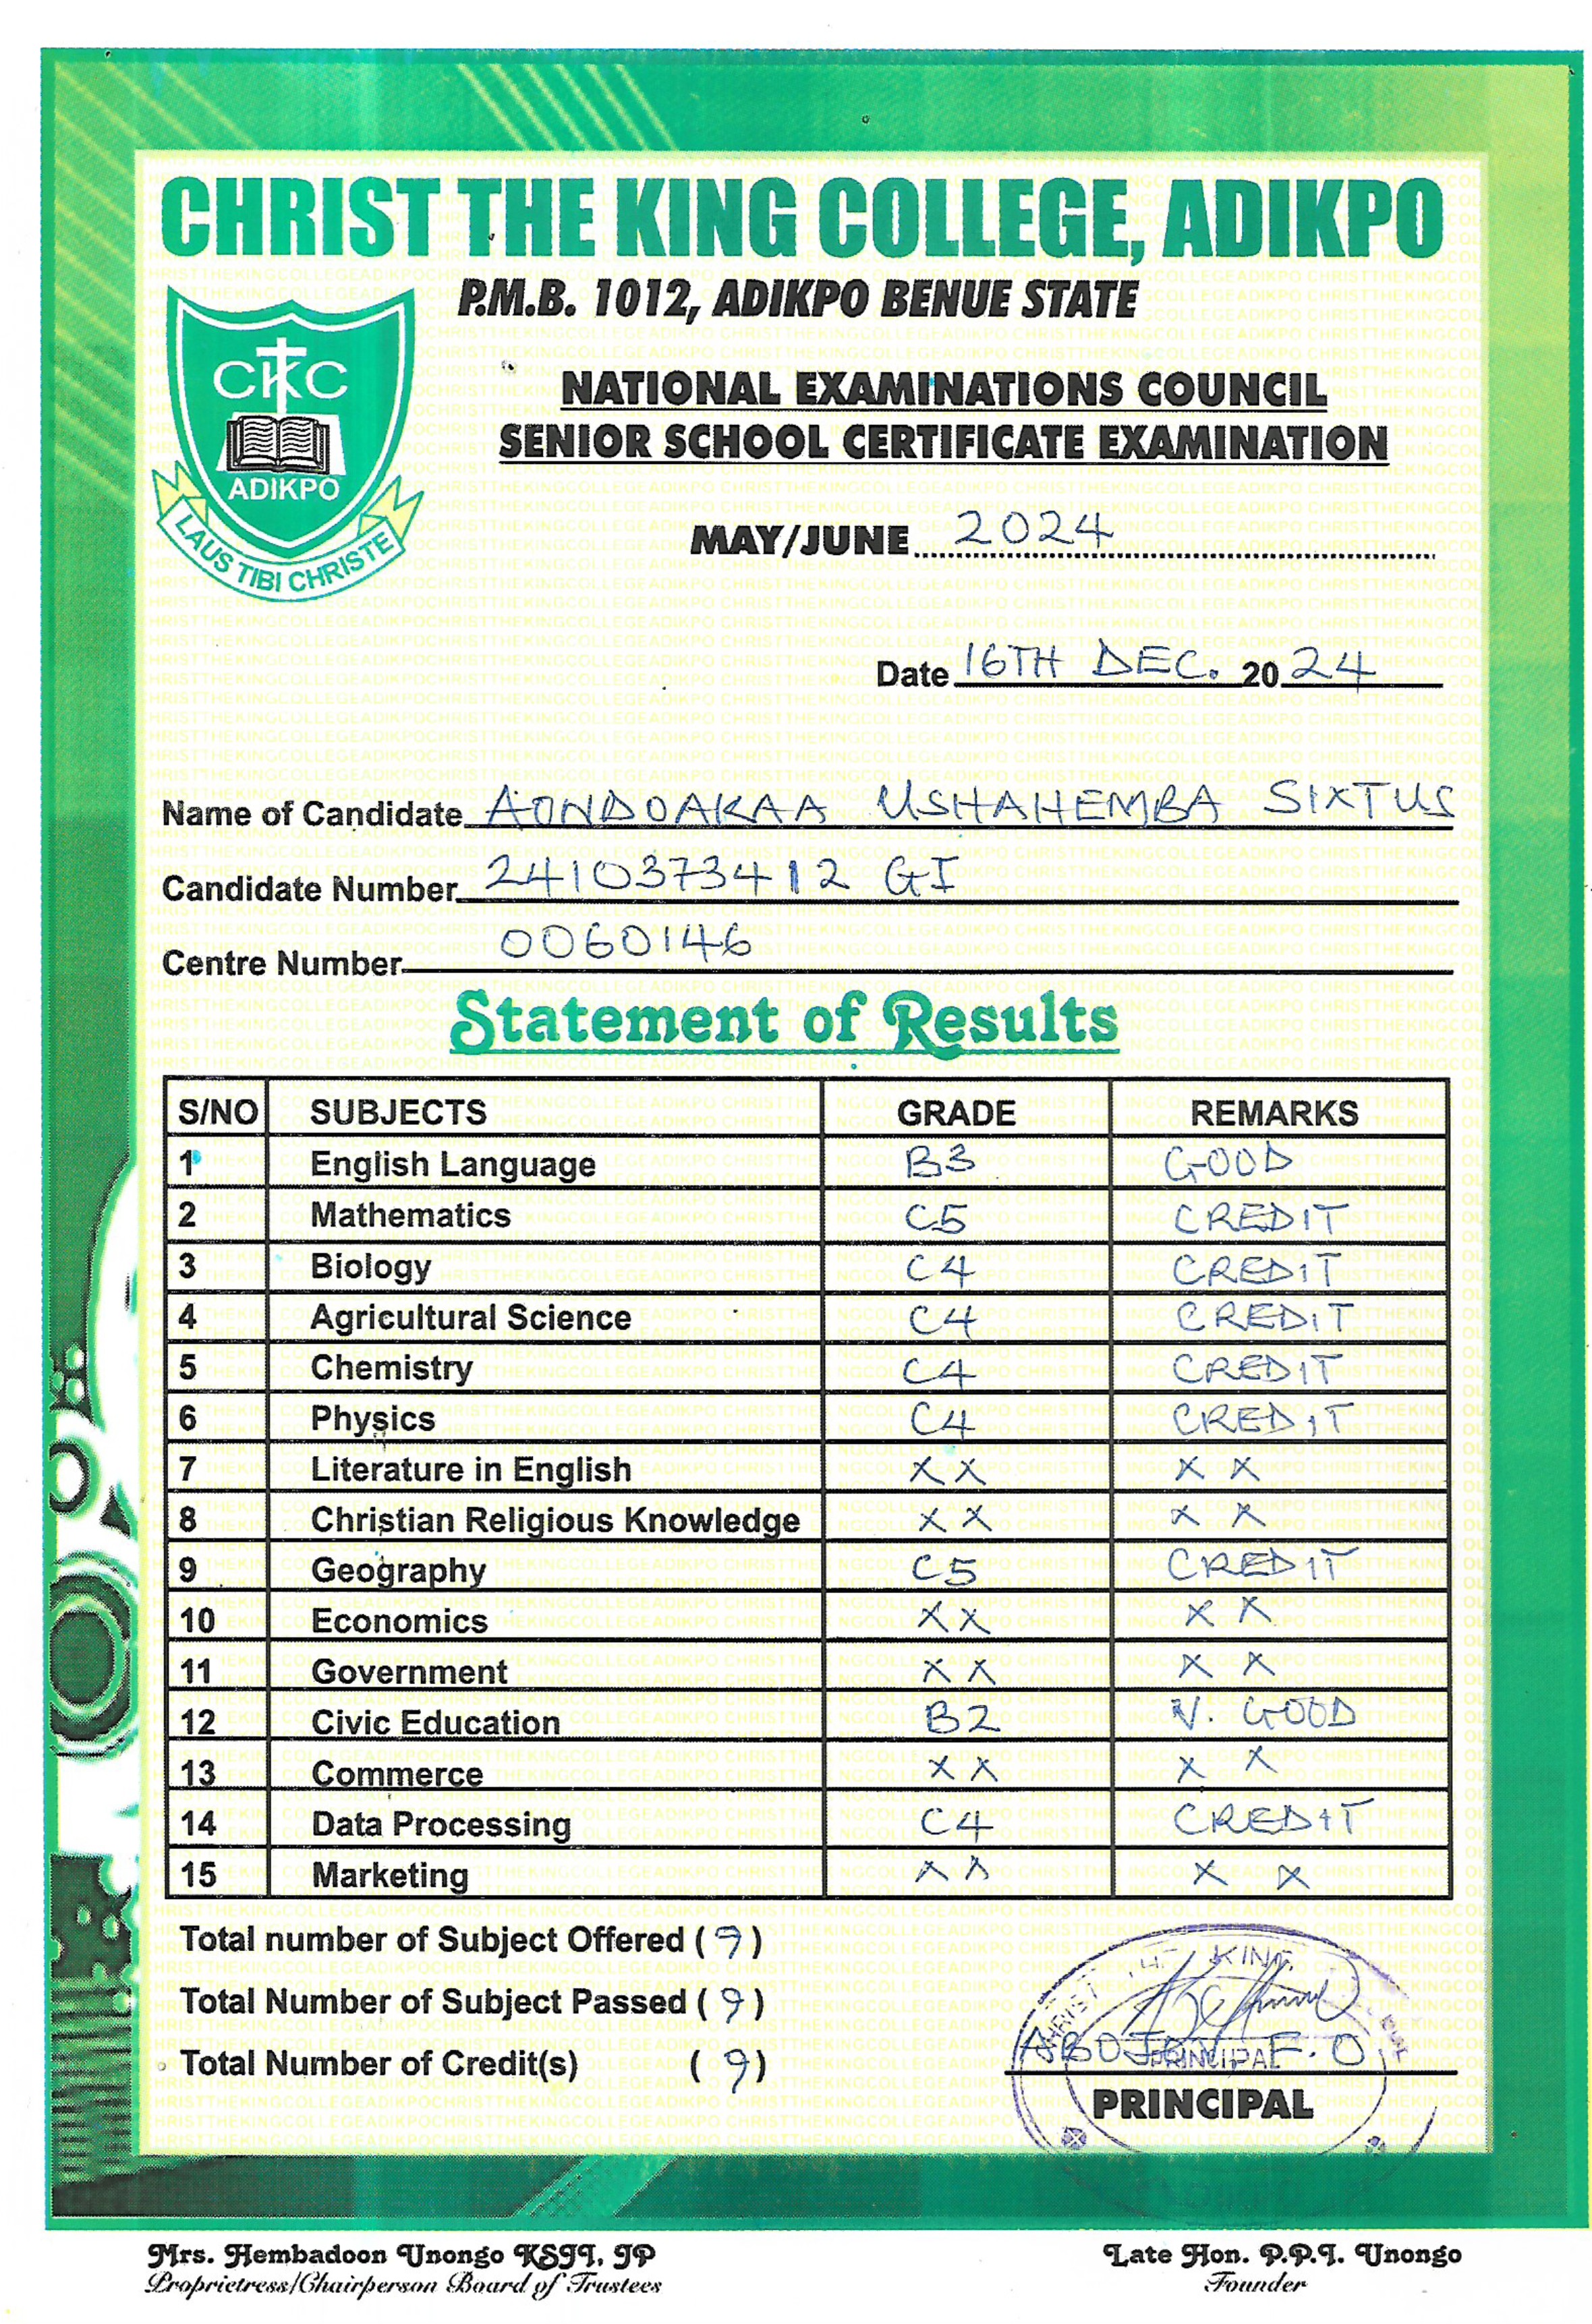 CHRIST THE KING COLLEGE, ADIKPO
P.M.B. 1012, ADIKPO BENUE STATE
CKC
ADIKPO
LAUS TIBI CHRISTE
NATIONAL EXAMINATIONS COUNCIL
SENIOR SCHOOL CERTIFICATE EXAMINATION
MAY/JUNE 2024
Date 16TH DEC. 2024
Name of Candidate AONDOAKAA USHAHEMBA SIXTUS
Candidate Number 2410373412 GI
Centre Number 0060146
Statement of Results
S/NO SUBJECTS GRADE REMARKS
1 English Language B3 GOOD
2 Mathematics C5 CREDIT
3 Biology C4 CREDIT
4 Agricultural Science C4 CREDIT
5 Chemistry C4 CREDIT
6 Physics C4 CREDIT
7 Literature in English X X X X
8 Christian Religious Knowledge X X X X
9 Geography C5 CREDIT
10 Economics X X X X
11 Government X X X X
12 Civic Education B2 V. GOOD
13 Commerce X X X X
14 Data Processing C4 CREDIT
15 Marketing X X X X
Total number of Subject Offered (9)
Total Number of Subject Passed (9)
Total Number of Credit(s) (9)
CHRIST THE KING
F. O.
PRINCIPAL
PRINCIPAL
Mrs. Hembadoon Unongo KSJI, JP
Proprietress/Chairperson Board of Trustees
Late Hon. P.P.I. Unongo
Founder